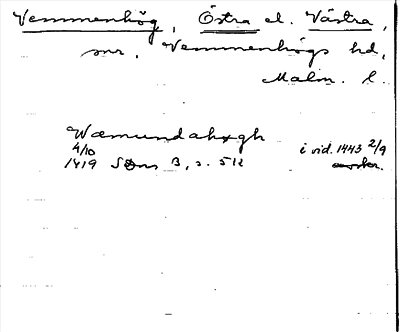 Vemmenhög, Östra el. Västra,
snr, Vemmenhögs hd,
Malm. l.
Wæmundahøgh
4/10
i vid. 1443 2/9
1419 SDns 3, s. 512